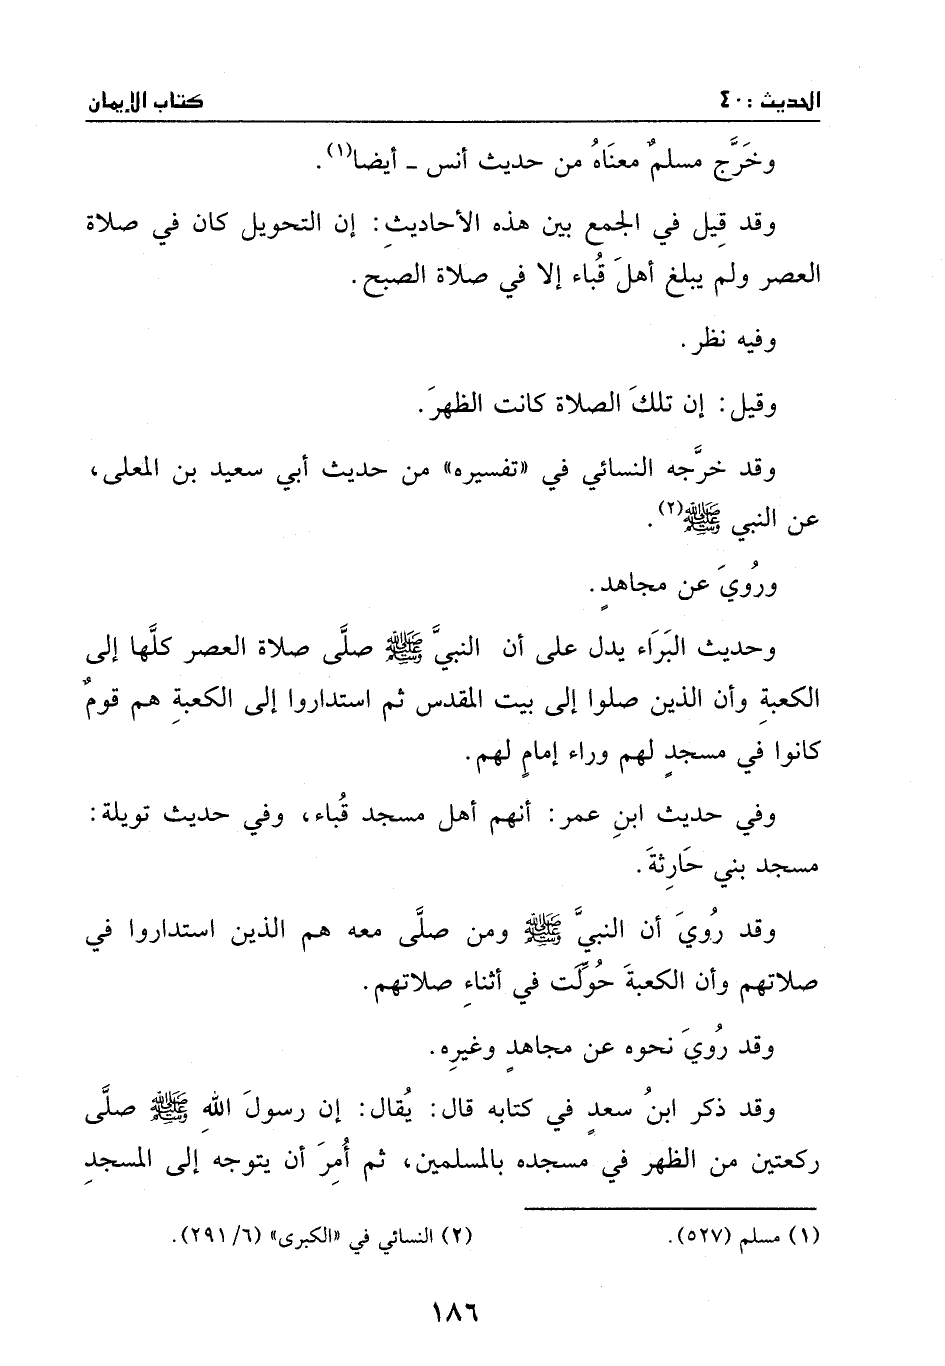 الحديث : ٤٠ كتاب الإيمان
وخَرَّج مسلمٌ معنَاهُ من حديث أنس ـ أيضا(١).
وقد قِيل في الجمع بين هذه الأحاديثِ : إن التحويل كان في صلاة
العصر ولم يبلغ أهلَ قُباء إلا في صلاة الصبح.
وفيه نظر .
وقيل : إن تلكَ الصلاة كانت الظهرَ.
وقد خرَّجه النسائي في «تفسيره» من حديث أبي سعيد بن المعلى ،
عن النبي ﷺ(٢).
ورُويَ عن مجاهدٍ.
وحديث البَرَاء يدل على أن النبيَّ ﷺ صلَّى صلاة العصر كلَّها إلى
الكعبةِ وأن الذين صلوا إلى بيت المقدس ثم استداروا إلى الكعبةِ هم قومٌ
كانوا في مسجدٍ لهم وراء إمامٍ لهم.
وفي حديث ابنِ عمر : أنهم أهل مسجد قُباء، وفي حديث تويلة :
مسجد بني حَارِثةَ.
وقد رُويَ أن النبيَّ ﷺ ومن صلَّى معه هم الذين استداروا في
صلاتهم وأن الكعبةَ حُوِّلَت في أثناءِ صلاتهم.
وقد رُويَ نحوه عن مجاهدٍ وغيرِه.
وقد ذكر ابنُ سعدٍ في كتابه قال : يُقال : إن رسولَ اللهِ ﷺ صلَّى
ركعتين من الظهر في مسجده بالمسلمين، ثم أُمِرَ أن يتوجه إلى المسجدِ
(١) مسلم (٥٢٧). (٢) النسائي في «الكبرى» (٦/ ٢٩١).
١٨٦